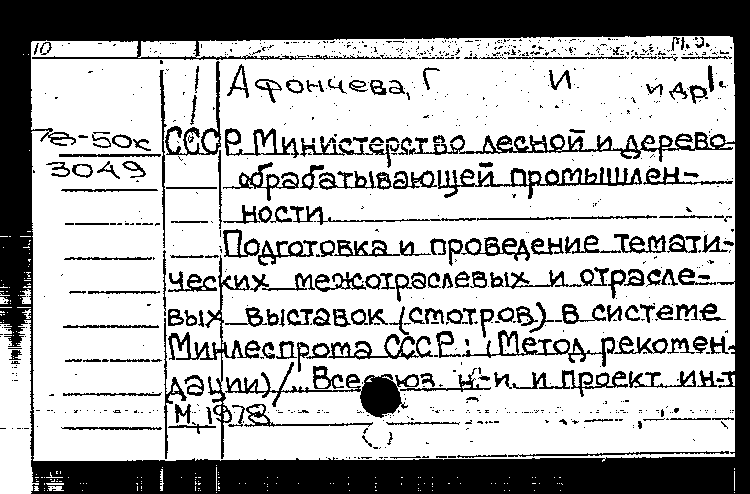 10 М. О.
Афончева, Г И и др.
78-50к СССР. Министерство лесной и дерево-
3049 обрабатывающей промышлен-
ности.
Подготовка и проведение темати-
ческих межотраслевых и отрасле-
вых выставок (смотров) в системе
Минлеспрома СССР: (Метод. рекомен-
дации)/... Всесоюз. н.-и. и проект. ин-т
М, 1978